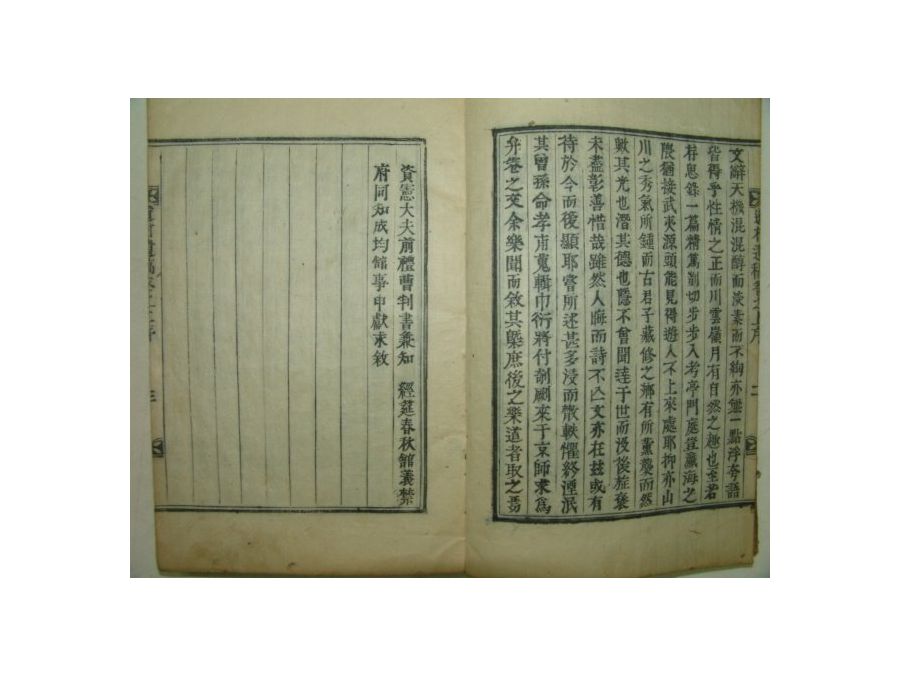 文辭天機混混醇而淡素而不絢亦無一點浮夸語
皆得乎性情之正而川雲嶺月有自然之趣也至若
梓思錄一篇精篤剴切步步入考亭門庭登瀛海之
隈猶接武夷源頭能見得遊人不上來處耶抑亦山
川之秀氣所鍾而古君子藏修之鄉有所薰襲而然
歟其光也潛其德也隱不曾聞達于世而沒後旌褒
未盡彰善惜哉雖然人晦而詩不亾文亦在玆或有
待於今而後顯耶嘗所述甚多浸而散軼懼終湮泯
其曾孫命孝甫蒐輯巾衍將付剞劂來于京師求爲
弁卷之文余樂聞而敘其槩庶後之樂道者取之焉
資憲大夫前禮曹判書兼知 經筵春秋館義禁
府同知成均館事申獻求敘